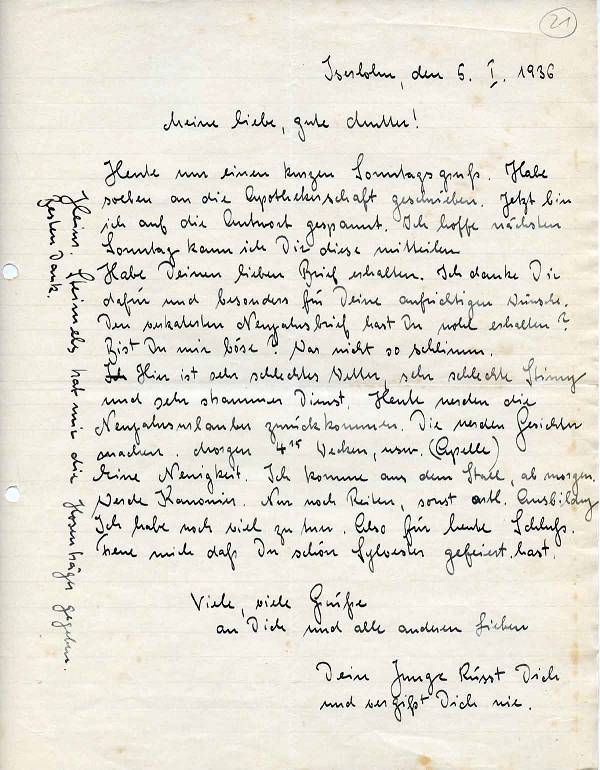 21
Iserlohn, den 6. I. 1936
Meine liebe, gute Mutter!
Heute nur einen kurzen Sonntagsgruß. Habe
soeben an die Apothekerschaft geschrieben. Jetzt bin
ich auf die Antwort gespannt. Ich hoffe nächsten
Sonntag kann ich Dir diese mitteilen
Habe Deinen lieben Brief erhalten. Ich danke Dir
dafür und besonders für Deine aufrichtigen Wünsche.
Den verkaterten Neujahrsbrief hast Du wohl erhalten?
Bist Du mir böse? War nicht so schlimm.
Hier ist sehr schlechtes Wetter, sehr schlechte Stimmg
und sehr strammer Dienst. Heute werden die
Neujahrsurlauber zurückkommen. Die werden Gesichter
machen. Morgen 4 15 Wecken, usw. (Capelle)
Eine Neuigkeit. Ich komme aus dem Stall, ab morgen.
Werde Kanonier. Nur noch Reiten, sonst artl. Ausbildung
Ich habe noch viel zu tun. Also für heute Schluß.
Freue mich daß Du schön Sylvester gefeiert hast.
Viele, viele Grüße
an Dich und alle anderen Lieben
Dein Junge küsst Dich
und vergißt Dich nie.
Heinr. hat mir die Hosenträger gegeben.
Besten Dank.